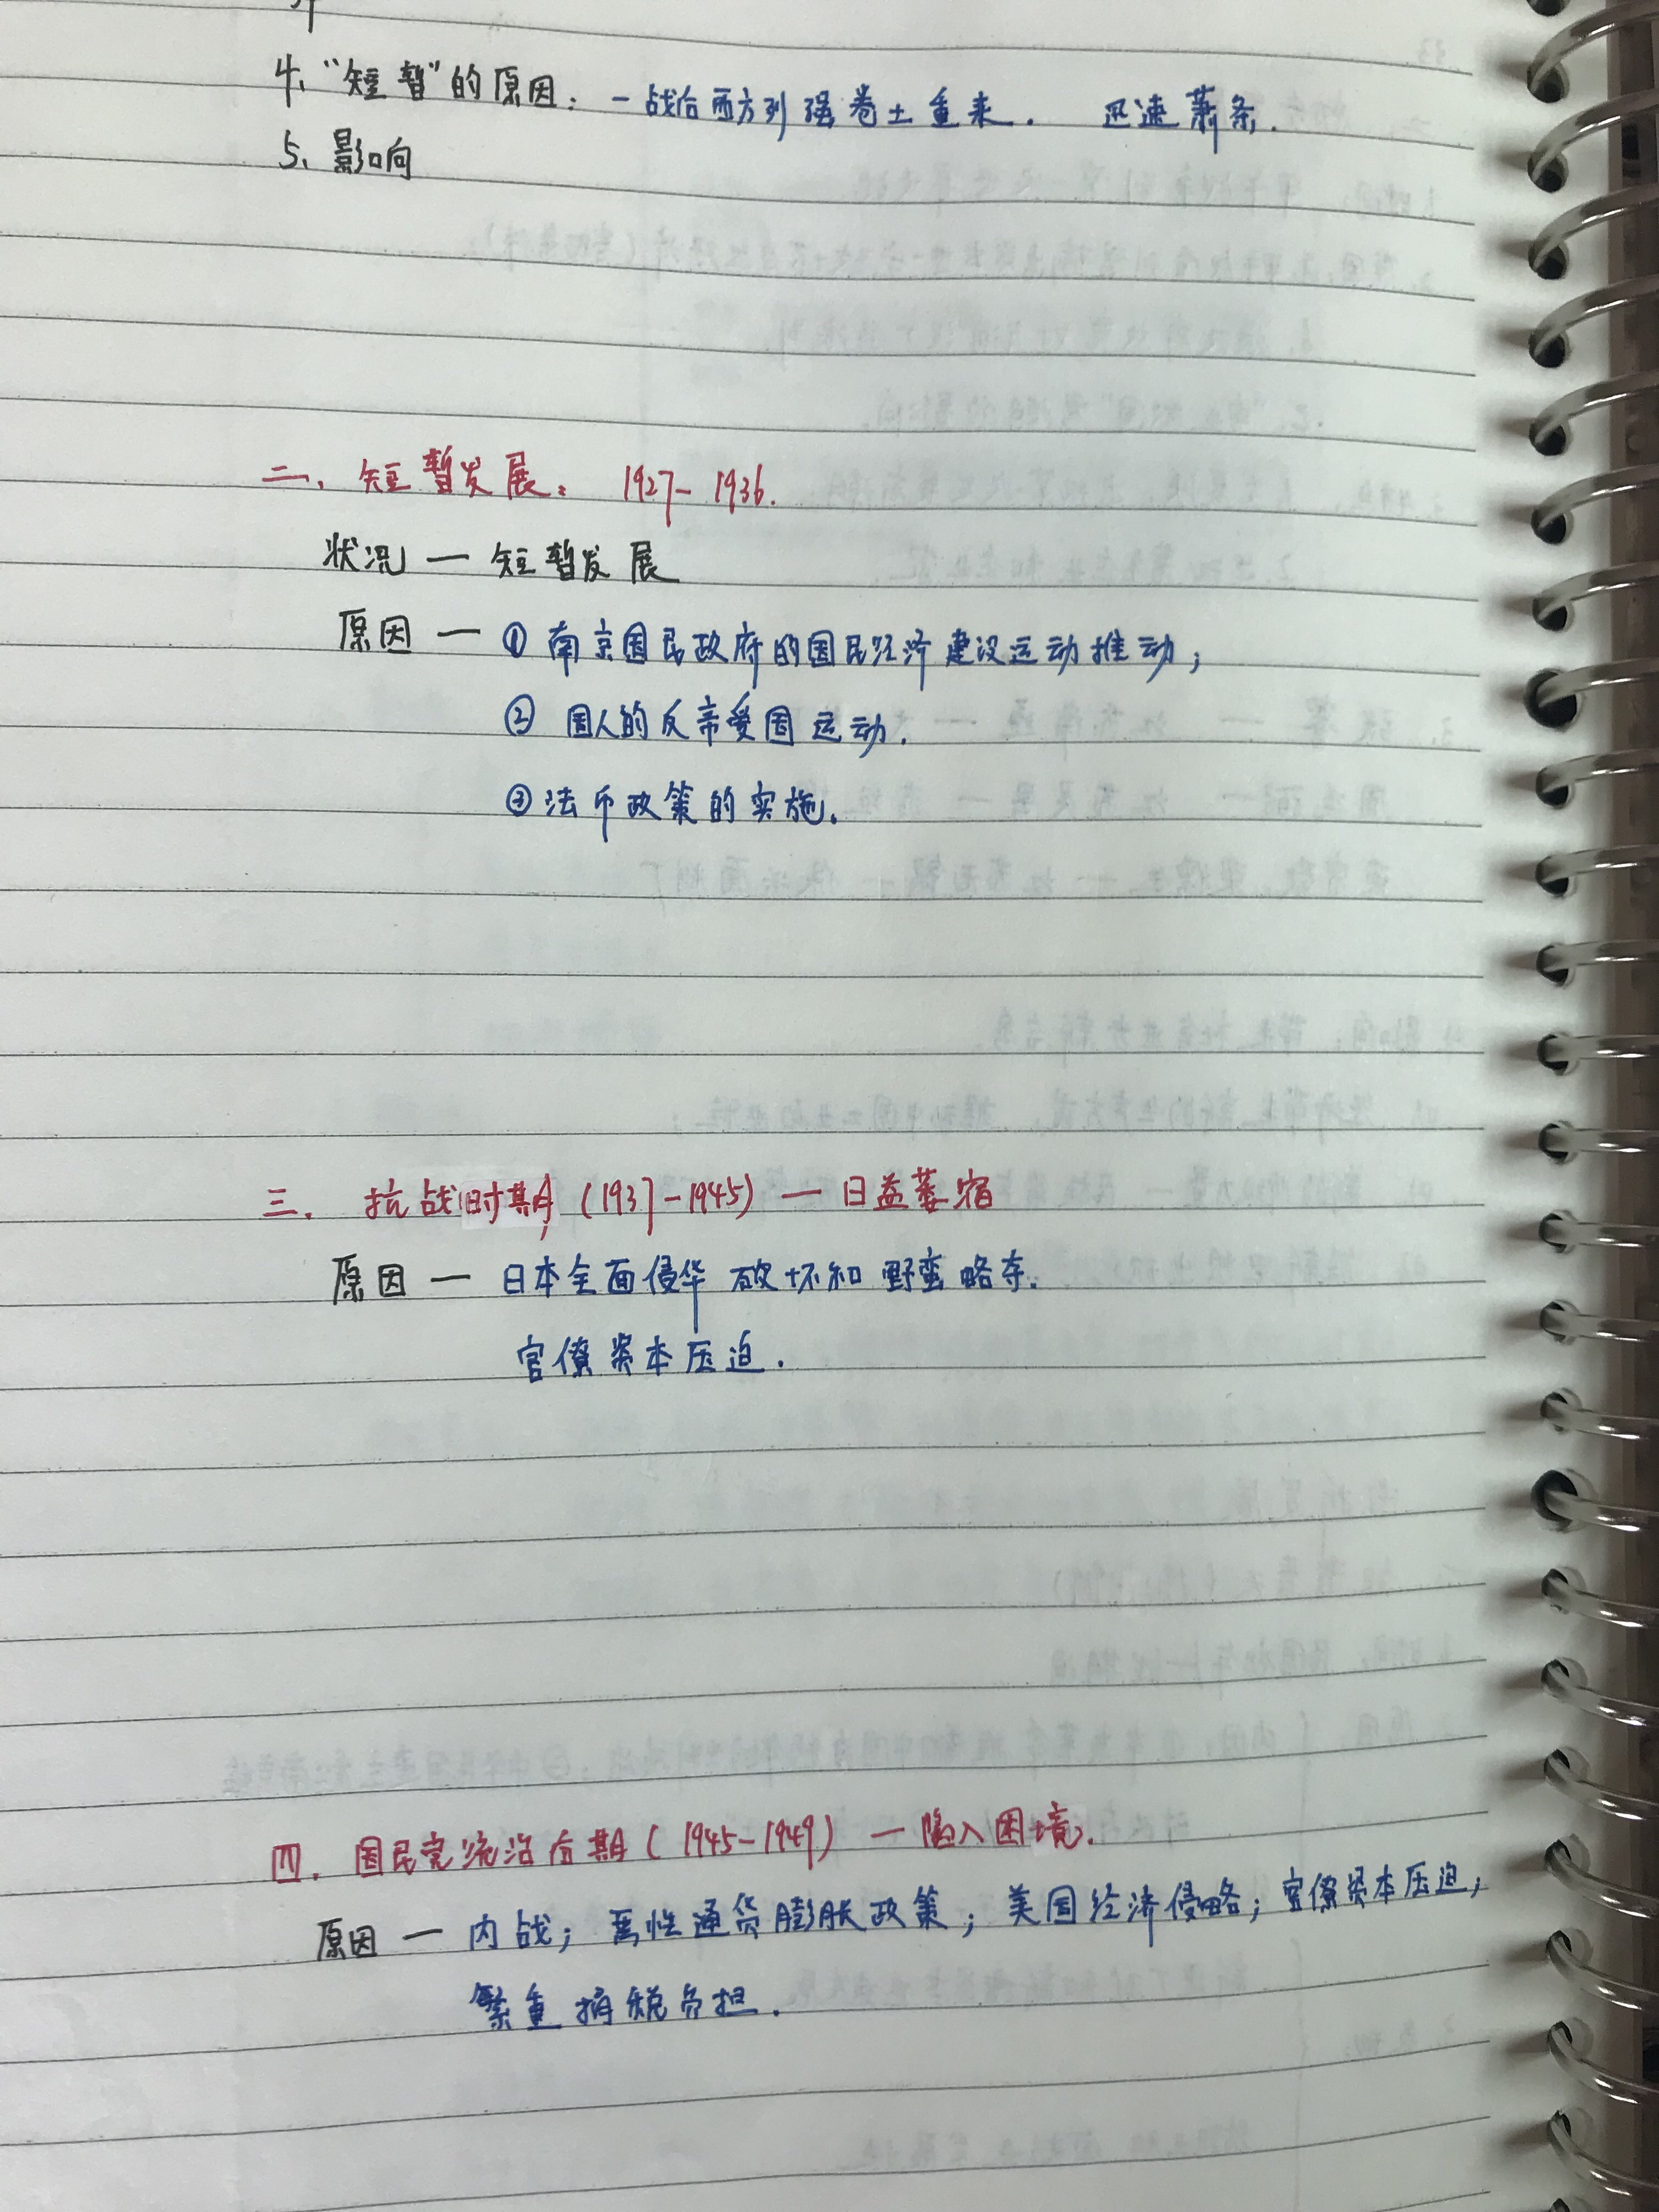 4、“短暂”的原因：一战后西方列强卷土重来. 迅速萧条.
5、影响
二、短暂发展: 1927-1936.
状况 — 短暂发展
原因 — ① 南京国民政府的国民经济建设运动推动；
② 国人的反帝爱国运动.
③ 法币政策的实施.
三. 抗战时期 (1937-1945) — 日益萎缩
原因 — 日本全面侵华 破坏和野蛮略夺.
官僚资本压迫.
四. 国民党统治后期 (1945-1949) — 陷入困境.
原因 — 内战；恶性通货膨胀政策；美国经济侵略；官僚资本压迫；
繁重捐税负担.